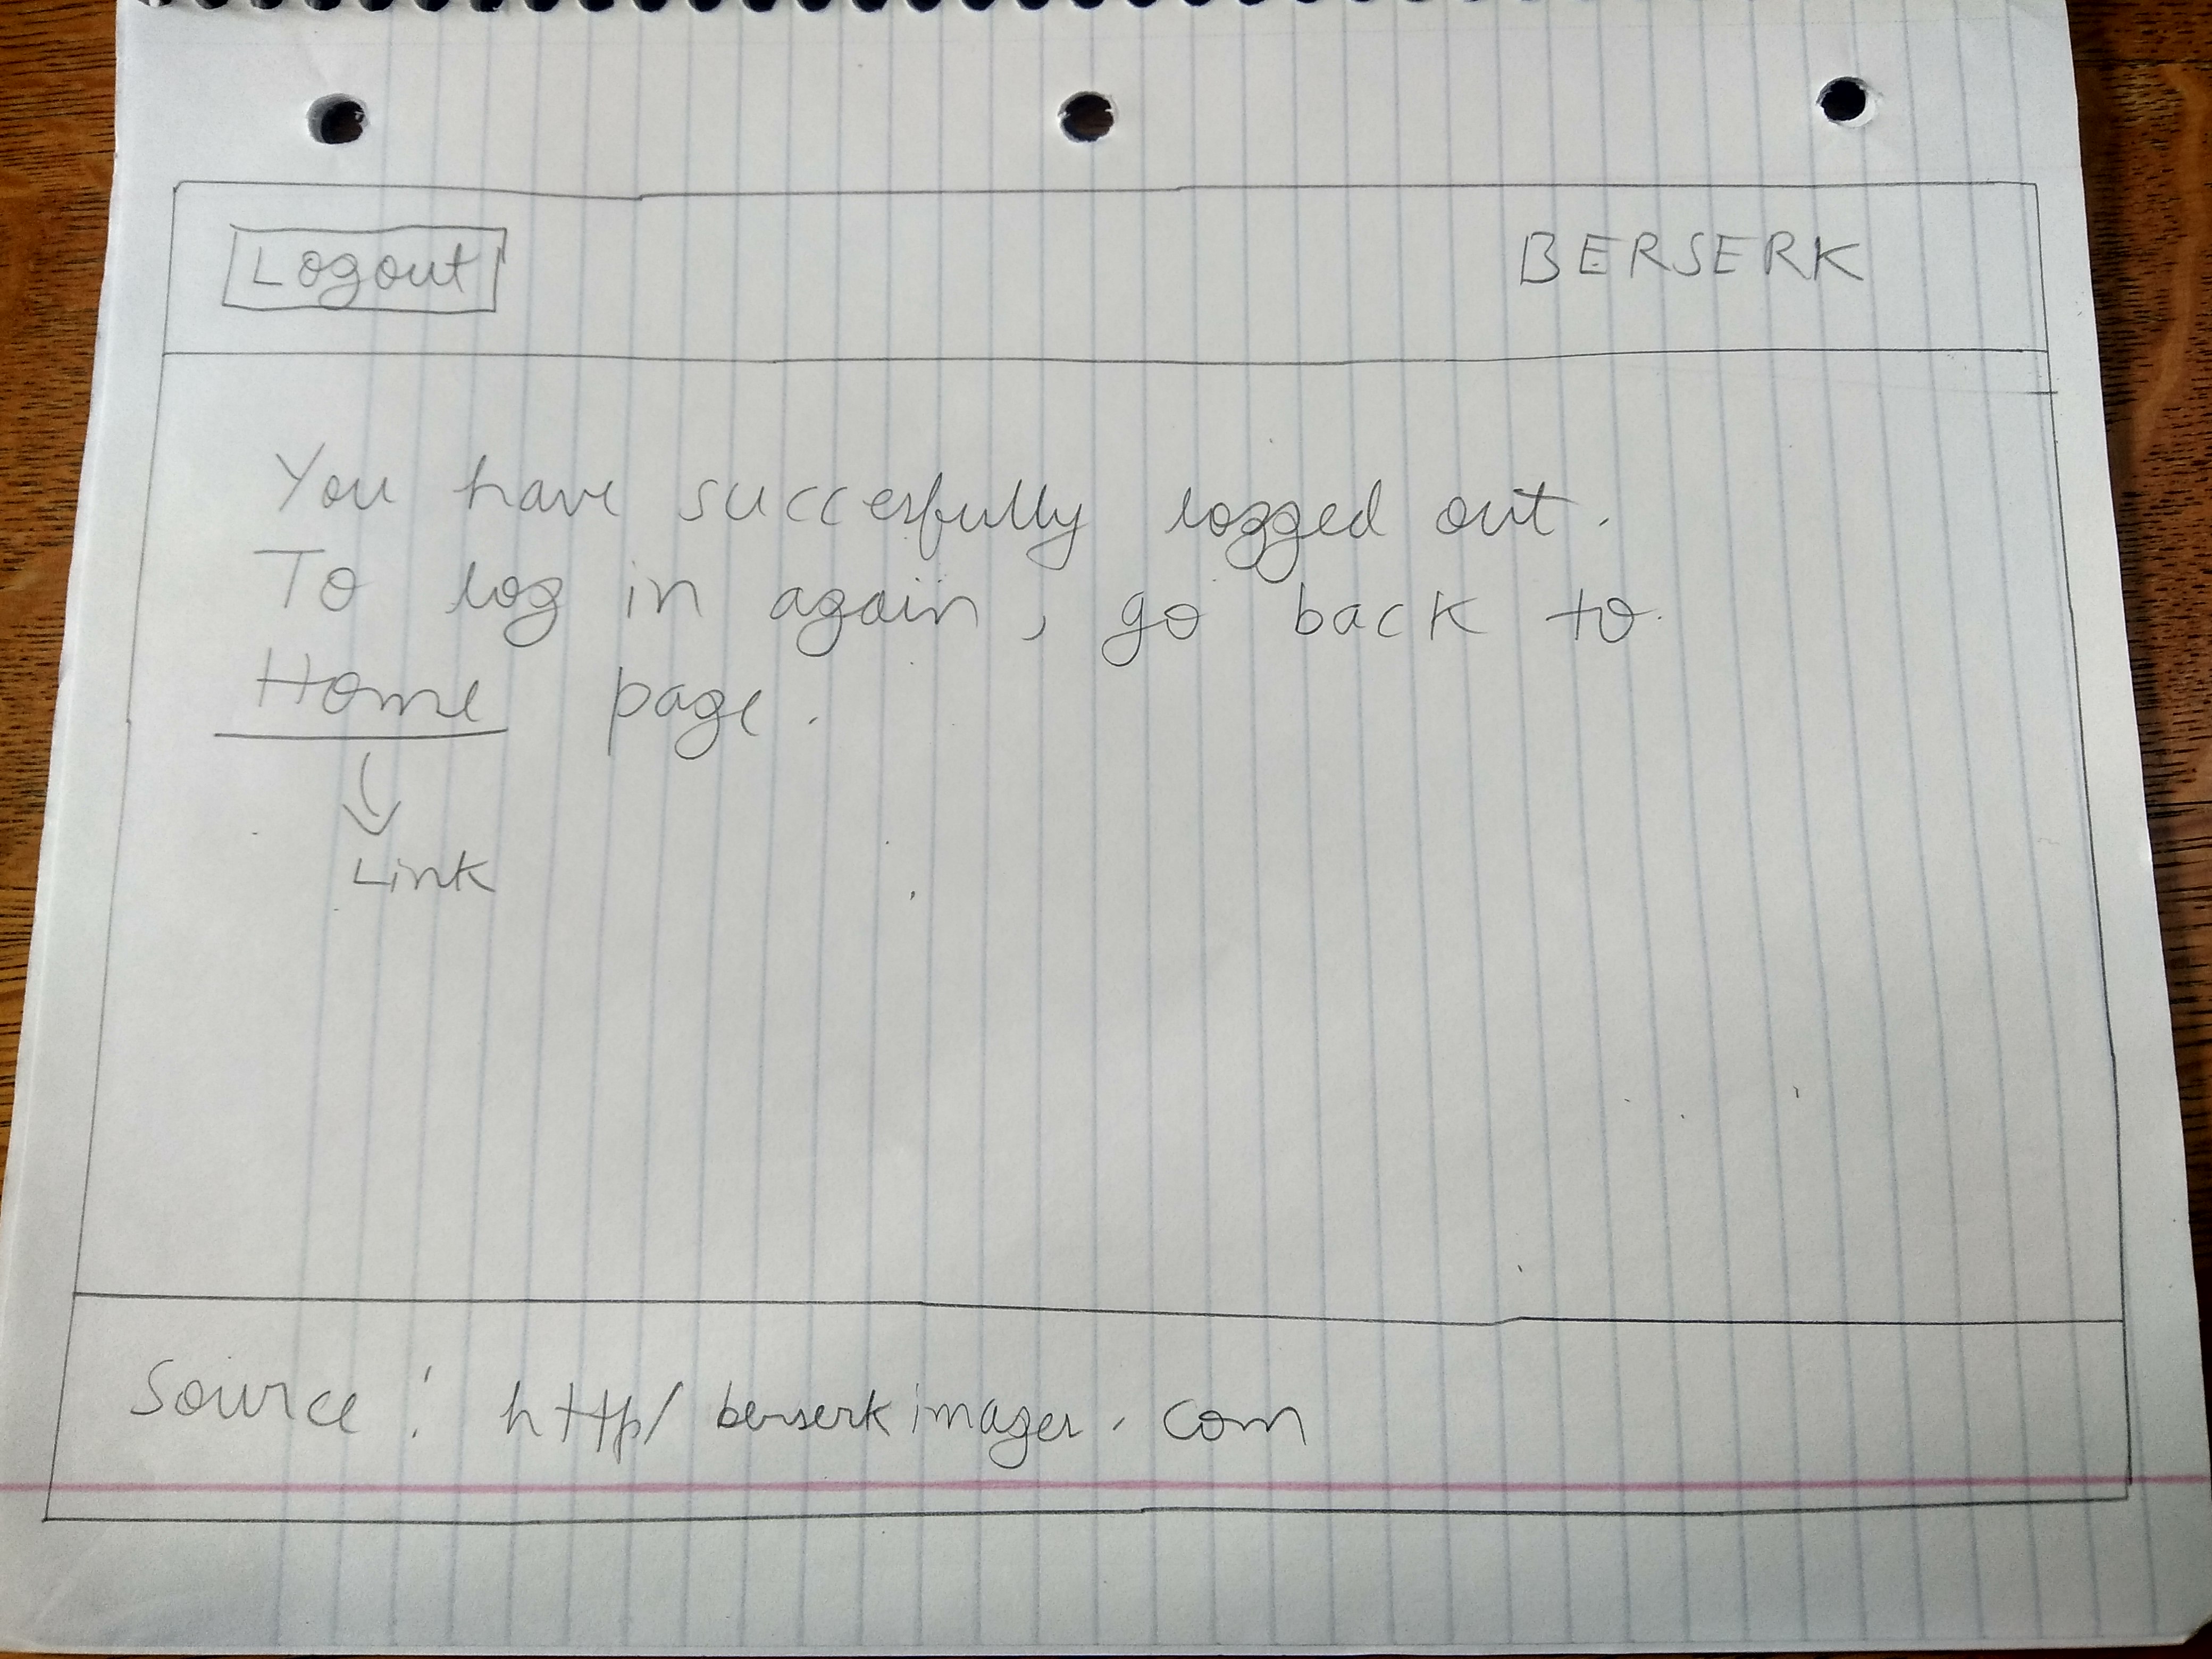 Logout
BERSERK
You have succesfully logged out.
To log in again, go back to
Home page.
Link
Source: http/ berserkimages.com